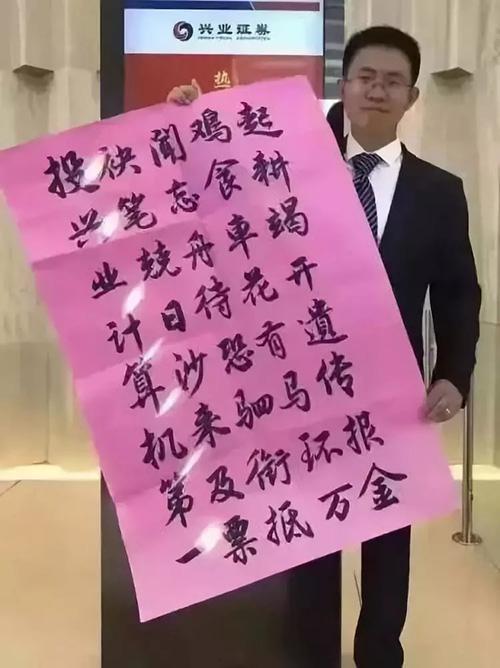 兴业证券
热
投袂闻鸡起
兴笔忘食耕
业兢舟车竭
计日待花开
算沙恐有遗
机来驷马传
第及衔环报
一票抵万金